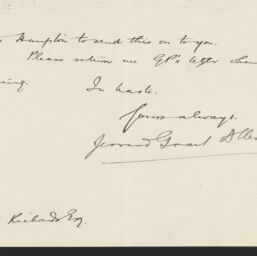 Hampton to send this on to you.
Please return me GP's letter when
In haste.
Yours always.
Grant Allen
Richards Esq.